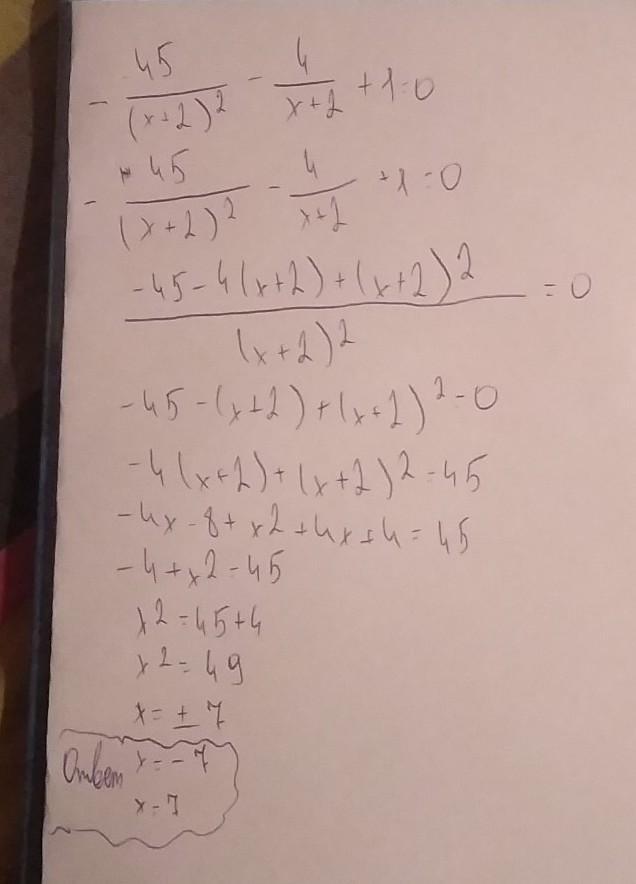 - 45/(x+2)² - 4/(x+2) + 1 = 0
- 45/(x+2)² - 4/(x+2) + 1 = 0
(-45 - 4(x+2) + (x+2)²)/(x+2)² = 0
-45 - (x+2) + (x+2)² = 0
-4(x+2) + (x+2)² = 45
-4x - 8 + x2 + 4x + 4 = 45
-4 + x2 = 45
x2 = 45+4
x2 = 49
x = ± 7
Ответ x = -7
x = 7